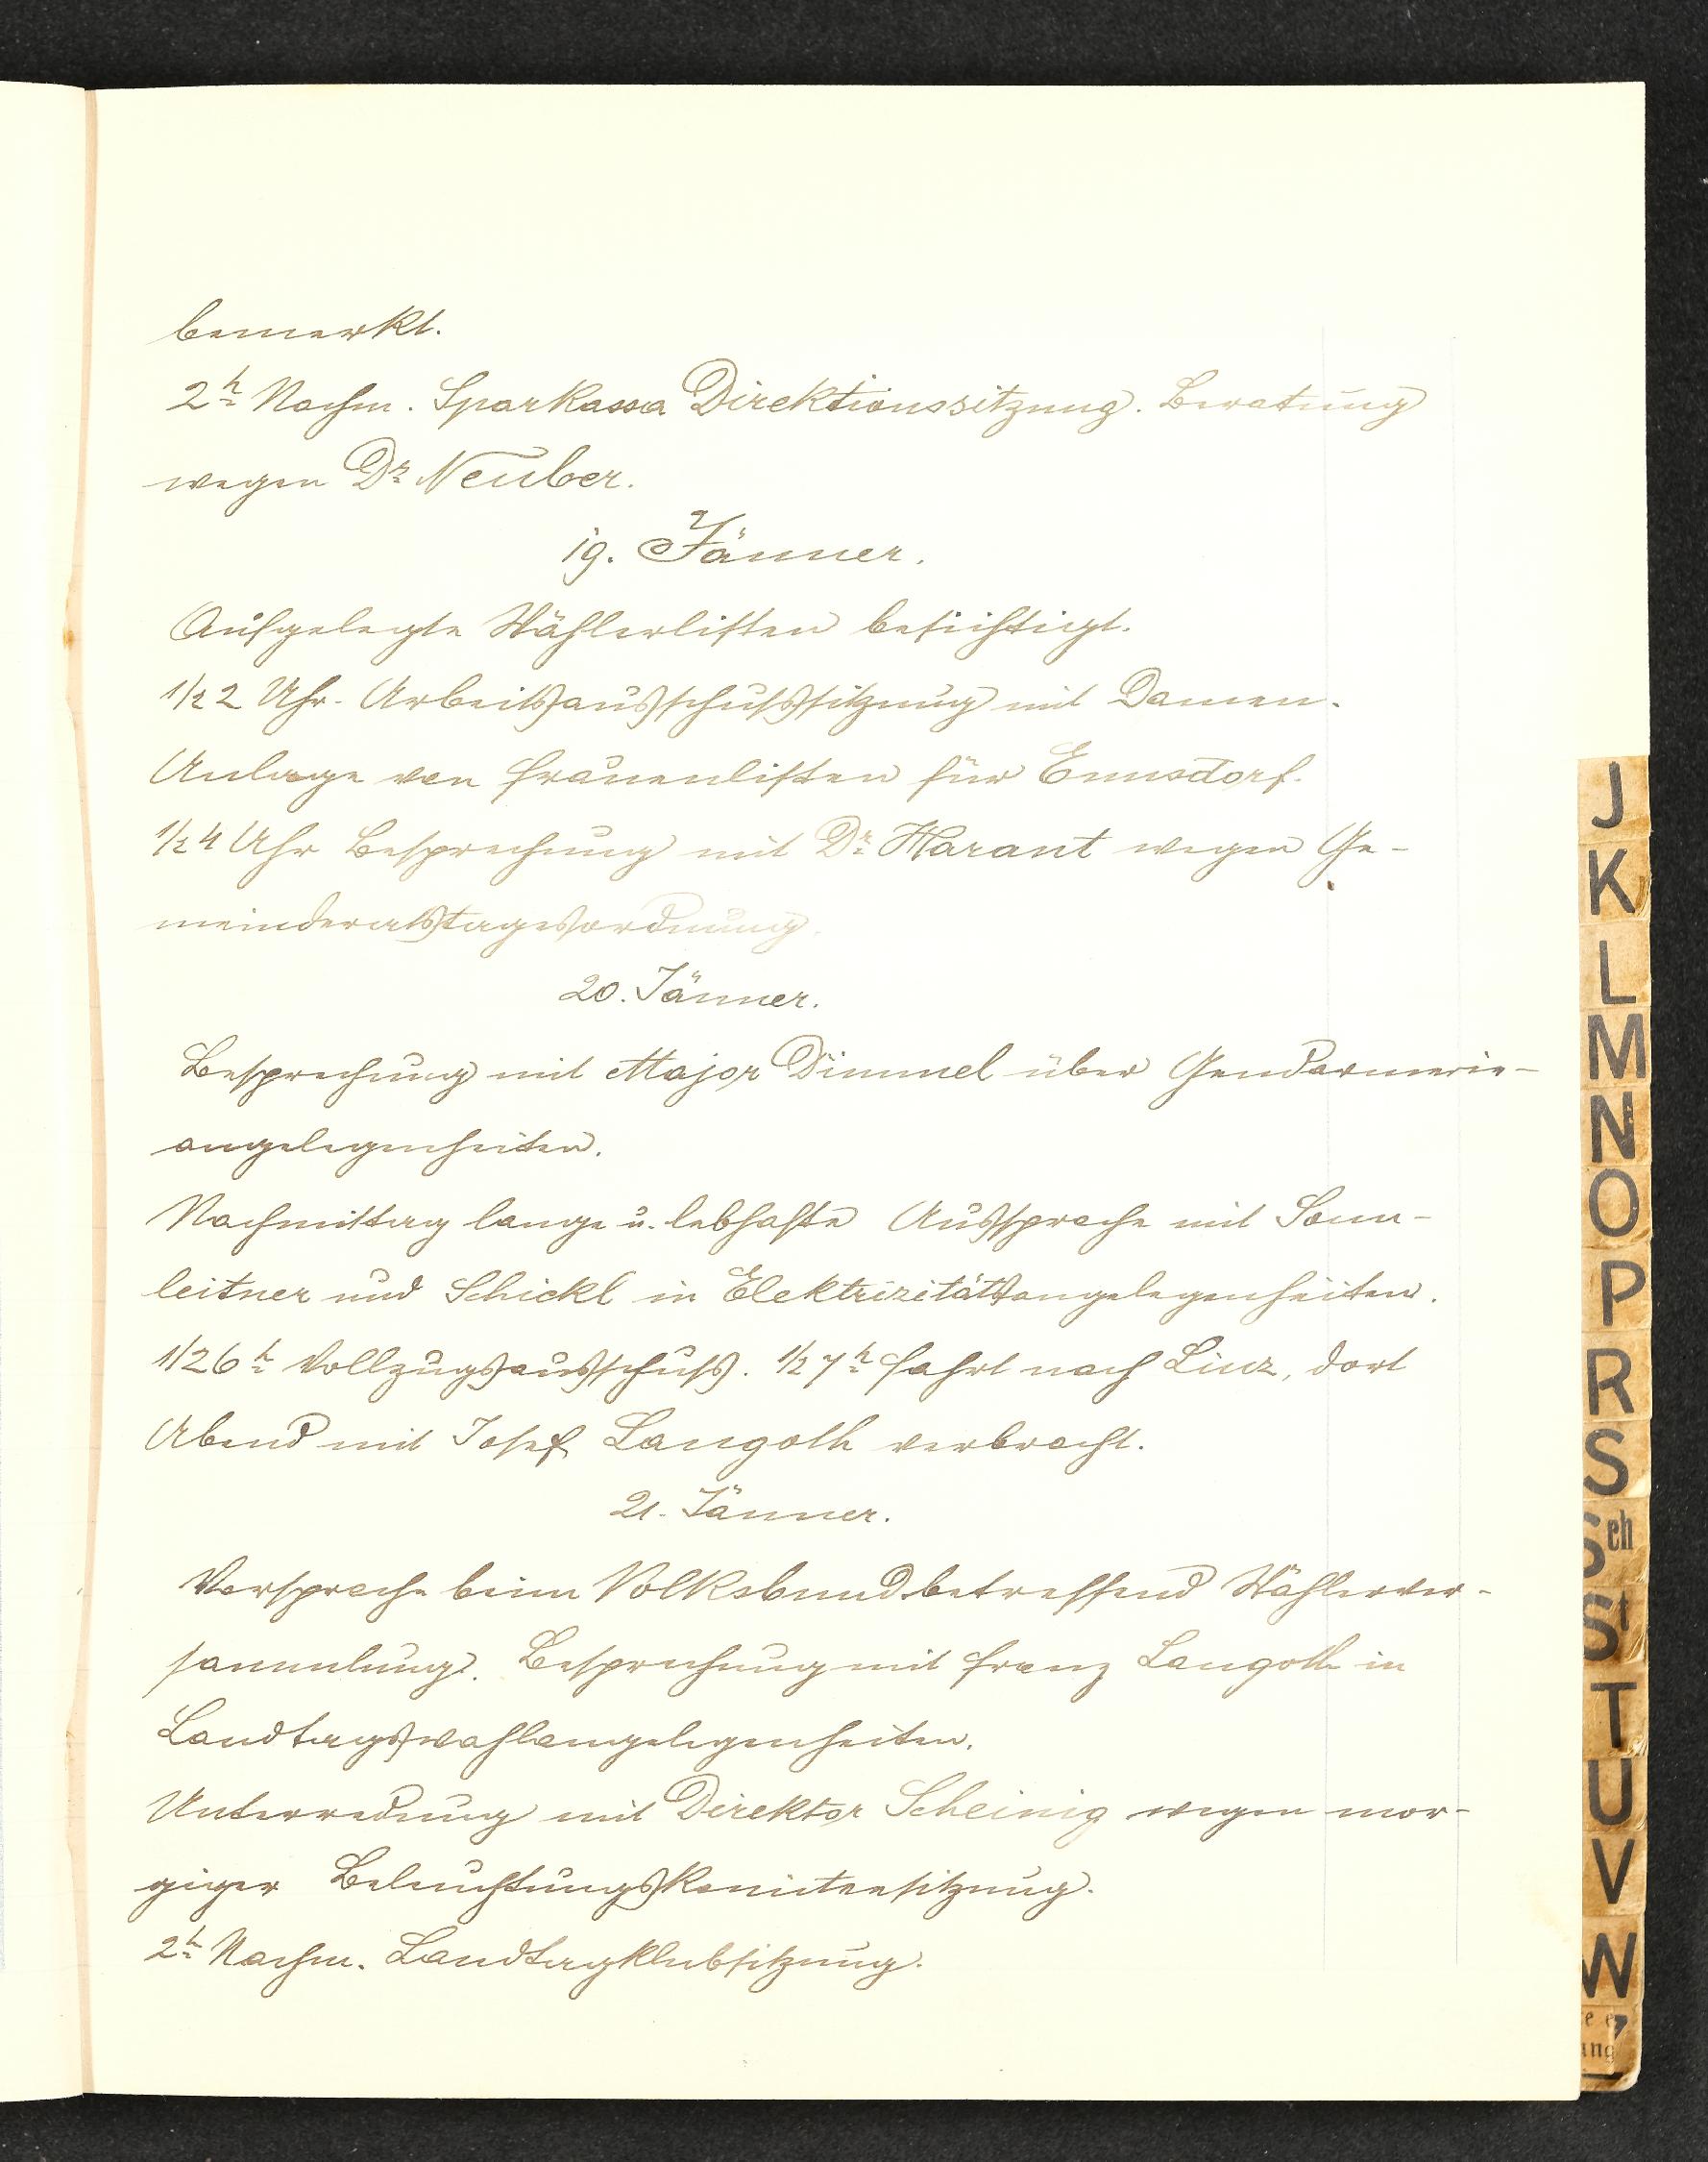 bemerkt.
2h Nachm. Sparkassa Direktionssitzung. Beratung
wegen Dr Neuber.
19. Jänner.
Aufgelegte Wählerlisten besichtigt.
1/2 2 Uhr. Arbeitsausschußsitzung mit Damen.
Anlage von Frauenlisten für Ennsdorf.
1/2 4 Uhr Besprechung mit Dr Harant wegen Ge-
meinderatstagesordnung.
20. Jänner.
Besprechung mit Major Dimmel über Gendarmerie-
angelegenheiten.
Nachmittag lange u. lebhafte Aussprache mit Sonn-
leitner und Schickl in Elektrizitätsangelegenheiten.
1/2 6h Vollzugsausschuß. 1/2 7h Fahrt nach Linz, dort
Abend mit Josef Langoth verbracht.
21. Jänner.
Vorsprache beim Volksbund betreffend Wählerver-
sammlung. Besprechung mit Franz Langoth in
Landtagswahlangelegenheiten.
Unterredung mit Direktor Scheinig wegen mor-
giger Beleuchtungskomiteesitzung.
2h Nachm. Landtagklubsitzung.
J
K
L
M
N
O
P
R
S
Sch
St
T
U
V
W